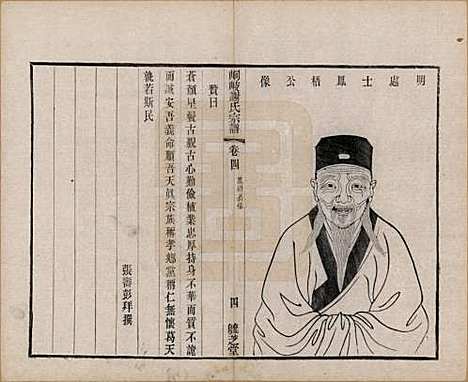 明處士鳳栖公像
峒岐謝氏宗譜
卷四
四
贊曰
蒼顏皇皇古貌古心勤儉植業忠厚持身不華而質
而誠安吾義命順吾天眞宗族稱孝鄉黨謂仁無懷葛天
幾若斯民
張壽彭拜撰